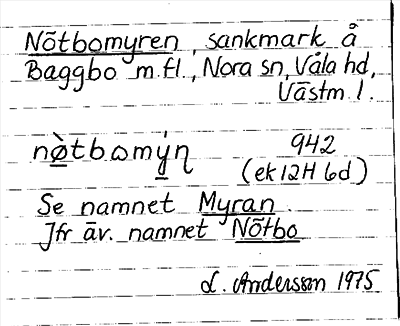 Nötbomyren, sankmark å
Baggbo m.fl., Nora sn, Våla hd,
Västm. l.
nø̀tbomýn̥ 942
(ek 12H 6d)
Se namnet Myran.
Jfr äv. namnet Nötbo
L. Andersson 1975